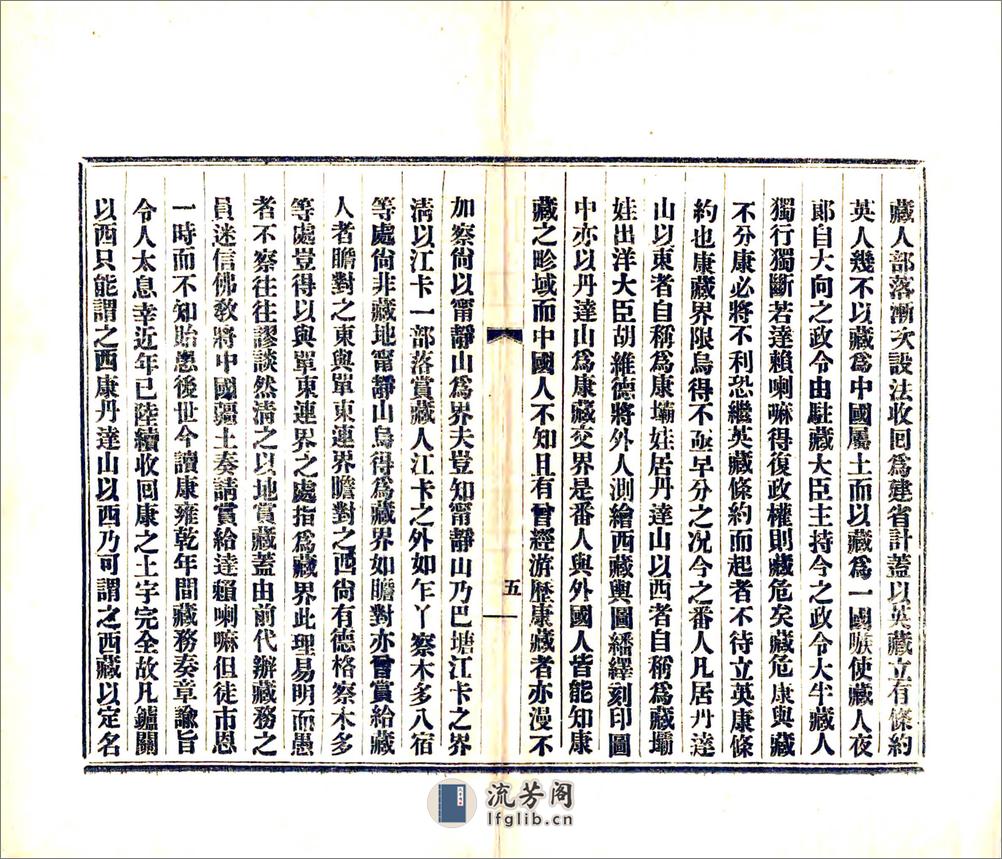 藏人部落漸次設法收回爲建省計蓋以英藏立有條約
英人幾不以藏爲中國屬土而以藏爲一國嗾使藏人夜
郞自大向之政令由駐藏大臣主持今之政令大半藏人
獨行獨斷若達賴喇嘛得復政權則藏危矣藏危康與藏
不分康必將不利恐繼英藏條約而起者不待立英康條
約也康藏界限烏得不亟早分之况今之番人凡居丹達
山以東者自稱爲康壩娃居丹達山以西者自稱爲藏壩
娃出洋大臣胡維德將外人測繪西藏輿圖繙繹刻印圖
中亦以丹達山爲康藏交界是番人與外國人皆能知康
藏之畛域而中國人不知且有曾經游歷康藏者亦漫不
五
加察尙以甯靜山爲界夫豈知甯靜山乃巴塘江卡之界
淸以江卡一部落賞藏人江卡之外如乍丫察木多八宿
等處尙非藏地甯靜山烏得爲藏界如瞻對亦曾賞給藏
人者瞻對之東與單東連界瞻對之西尙有德格察木多
等處豈得以與單東連界之處指爲藏界此理易明而愚
者不察往往謬談然淸之以地賞藏蓋由前代辦藏務之
員迷信佛敎將中國疆土奏請賞給達賴喇嘛但徒市恩
一時而不知貽患後世今讀康雍乾年間藏務奏章諭旨
令人太息幸近年已陸續收回康之土宇完全故凡鑪關
以西只能謂之西康丹達山以西乃可謂之西藏以定名
流芳阁
lfglib.cn